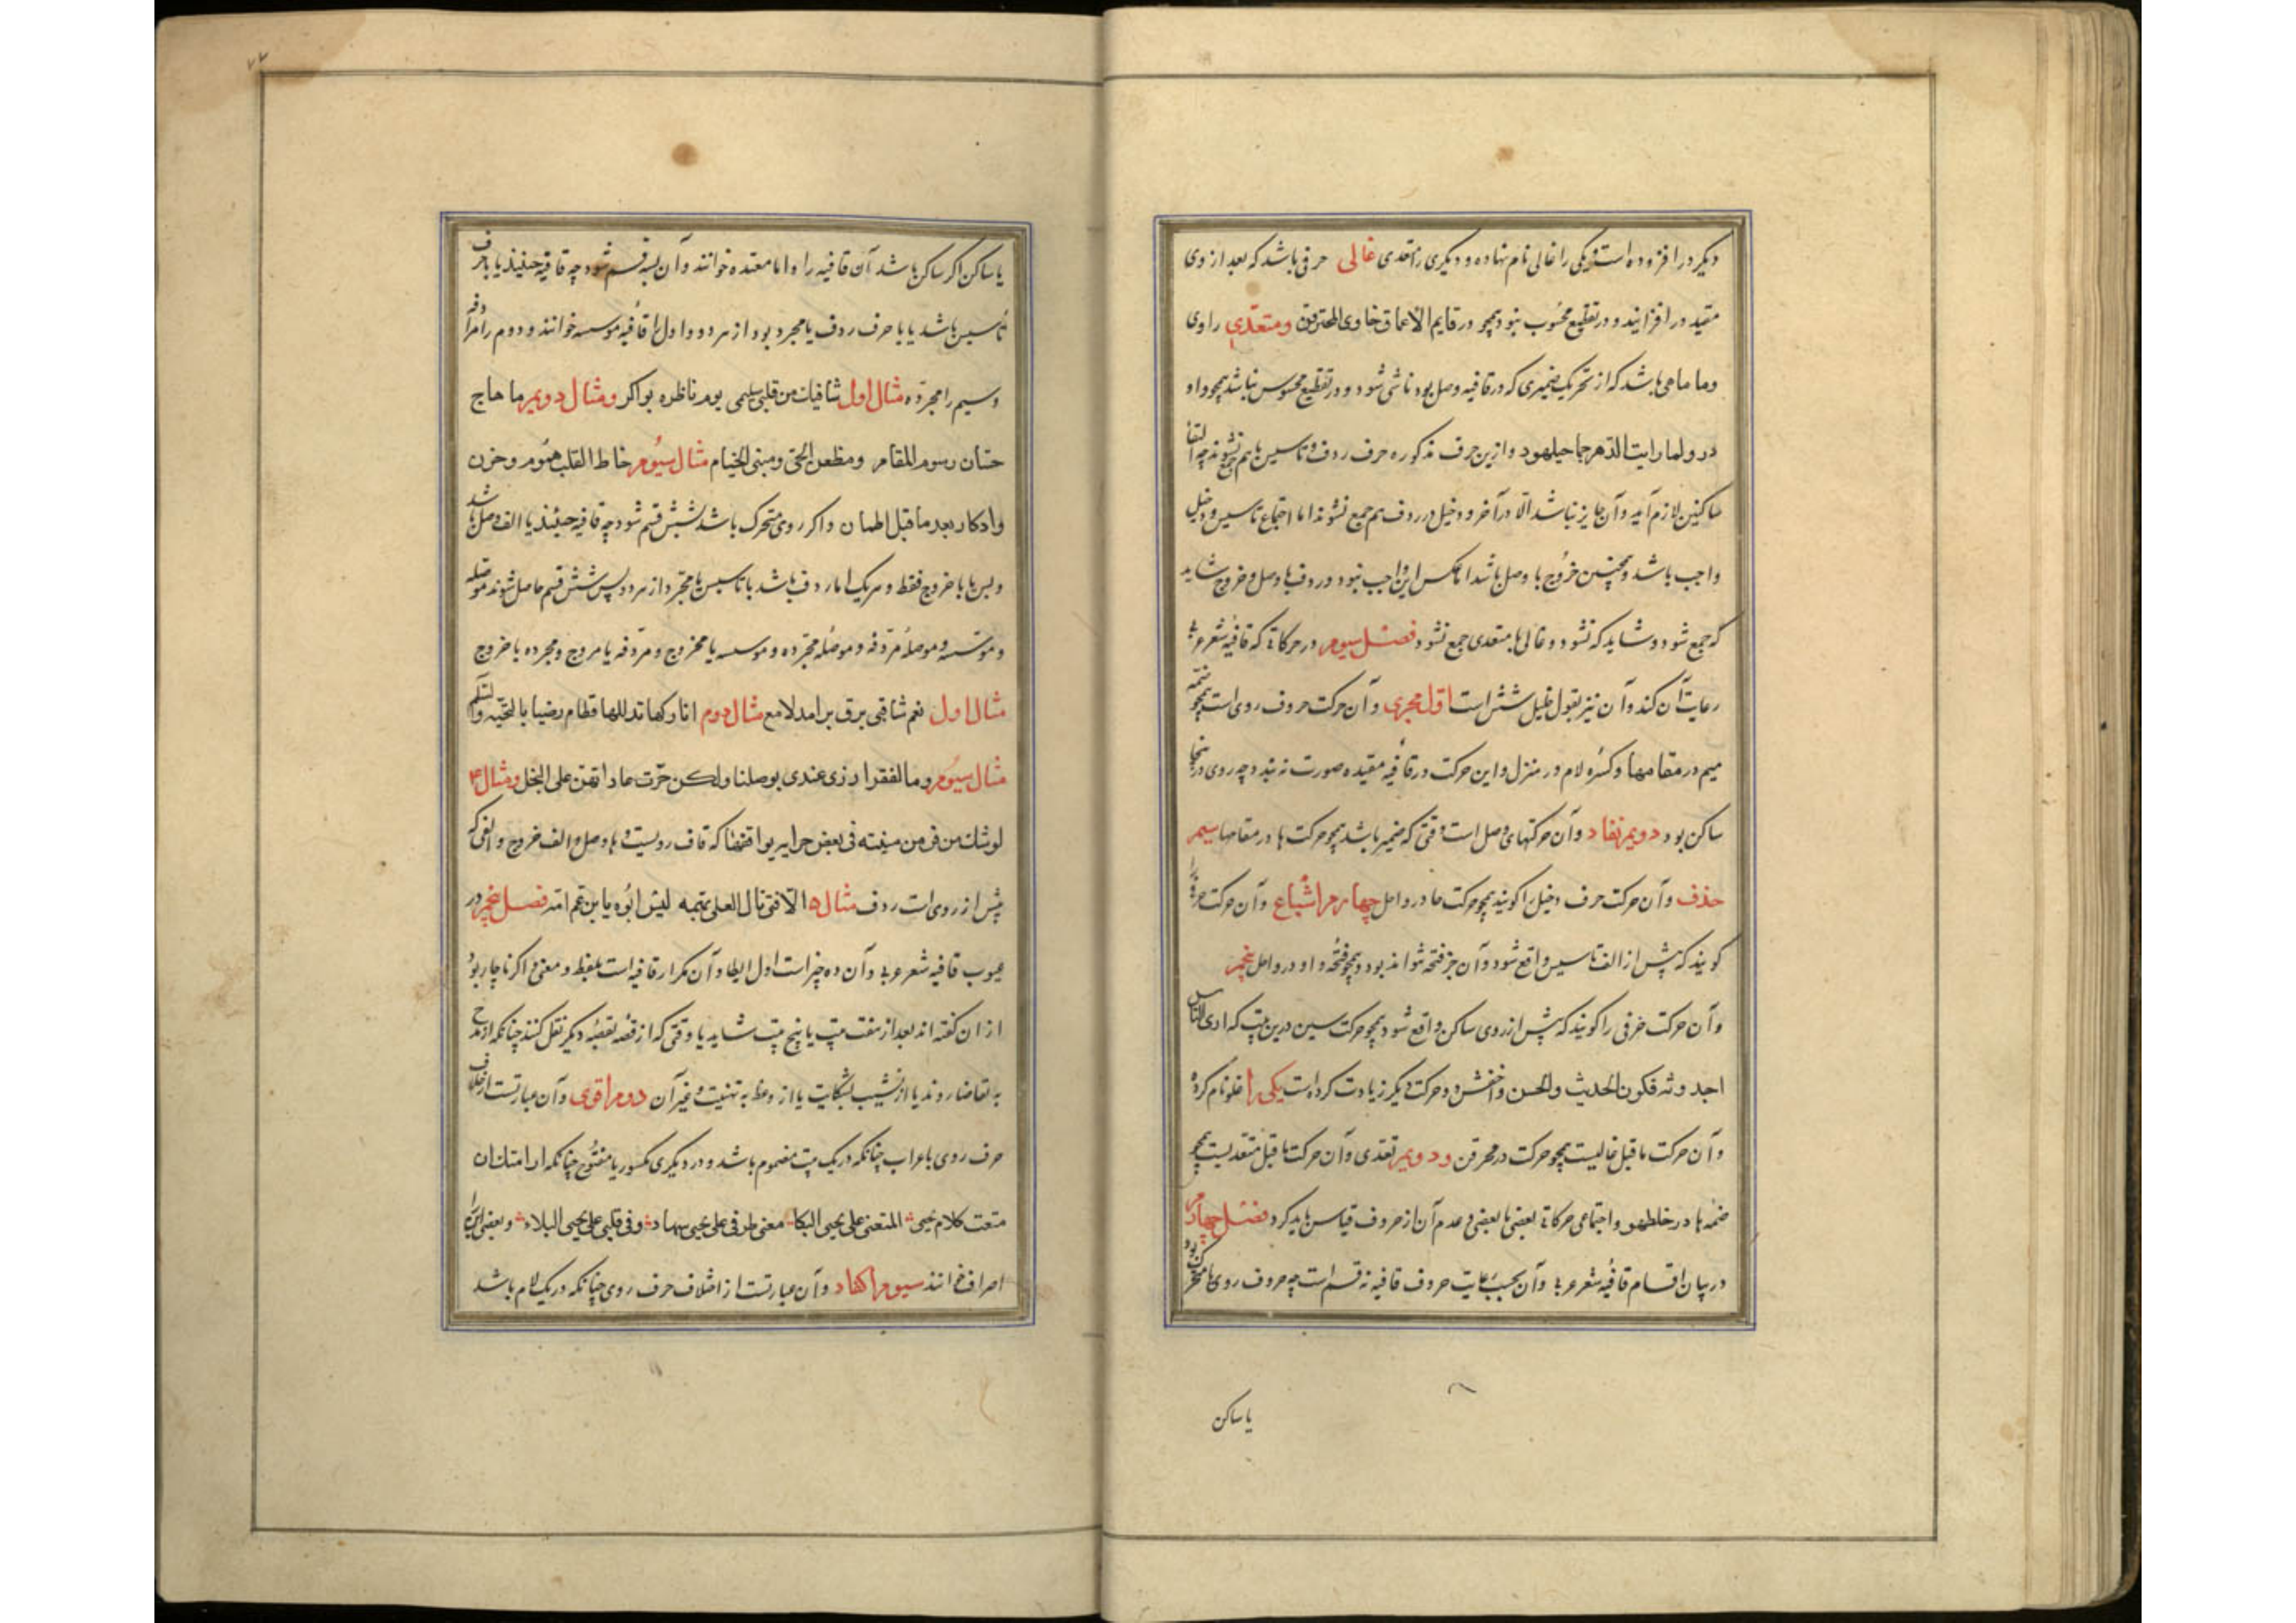 دیکر در افزوده است یکی را غالی نام نهاده و دیکری را متعدی غالی حرفی باشد که بعد از روی
مقید در افزایند و در تقطیع محسوب نبود همچو در قایم الاعماق خاوی المخترقن و متعدی راوی
وما مامی باشد که از تحریک ضمیری که در قافیه وصل بود ناشی شود و در تقطیع محسوس نباشد همچو واو
در ولما رایت الدهر جما حیلهود و ازین حرف مذکوره حرف ردف و تاسیس باهم جمع نشوند چه التقا
ساکنین لازم آید و آن جایز نباشد الا در آخر و دخیل در ردف هم جمع نشوند اما اجتماع تاسیس و دخیل
واجب باشد و همچنین خروج با وصل باشد اما عکس این واجب نبود و ردف با وصل و خروج شاید
که جمع شود و شاید که نشود و غالی با متعدی جمع نشود فصل سیوم در حرکاتی که قافیه شعر عربی
رعایت آن کند و آن نیز بقول خلیل شش است اول مجری و آن حرکت حروف روی است همچو ضمه
میم در مقامها و کسره لام در منزل و این حرکت در قافیه مقیده صورت نه بندد چه روی درینجا
ساکن بود دویم نفاد و آن حرکتهای وصل است وقتی که ضمیر باشد همچو حرکت ها در مقامها سیم
حذف و آن حرکت حرف دخیل را کویند همچو حرکت حا در رواحل چهارم اشباع و آن حرکت حرفی را
کویند که پیش از الف تاسیس واقع شود و آن جز فتحه نتواند بود و همچو فتحه واو در رواحل پنجم
و آن حرکت حرفی را کویند که پیش از روی ساکن واقع شود همچو حرکت سین درین بیت که اری الناس
احدوثه فکون الحدیث والحسن و اخفش دو حرکت دیکر زیادت کرده است یکی را غلو نام کرده
و آن حرکت ماقبل غالیست همچو حرکت در مخترقن و دویم تعدی و آن حرکت ماقبل متعدیست همچو
ضمه ها در خاطهو و اجتماعی حرکاتی بعضی با بعضی و عدم آن از حروف قیاس باید کرد فصل چهارم
در بیان اقسام قافیه شعر عربی و آن بحسب رعایت حروف قافیه نه قسم است چه حروف روی یا متحرک بود
یا ساکن
یا ساکن اکر ساکن باشد آن قافیه را و اما مقیده خوانند و آن بسه قسم شود چه قافیه حینئذ یا با حرف
تاسیس باشد یا با حرف ردف یا مجرد بود از هر دو و اول را قافیه موسسه خوانند و دوم را مردفه
و سیم را مجرده مثال اول شافیات من قلبی سلیمی یوم ناظره بواکر و مثال دویم ما هاج
حسان رسوم المقام ومظعن الحی ومبنی الخیام مثال سیوم خاط القلب هموم وحزن
وادکار بعد ما قبل اطمان و اکر روی متحرک باشد شش قسم شود چه قافیه حینئذ یا الف وصل باشد
و بس یا با خروج فقط و هر یک اما ردف باشد یا تاسیس یا مجرد از هر دو پس شش قسم حاصل شوند موصله
و موسسه و موصله مردفه و موصله مجرده و موسسه یا مخروج و مردفه یا مروج و مجرده با خروج
مثال اول نعم شاقنی برق برامد لامع مثال دوم اتارکها تدللها قطام رضیا بالتحیه والسلم
مثال سیوم وما لفقرا درنی عندی بوصلنا ولکن جرت عاداتهن علی البخل و مثال ۴
لوشك من فر من منیته فی بعض حرایر یوافقها که قاف رویست و ها وصل و الف خروج و الفی که
پیش از روی است ردف مثال ۵ الا فتی نال العلی بهمه لیس ابوه یا بن عم امه فصل پنجم در
عیوب قافیه شعر عربی و آن ده چیز است اول ایطا و آن تکرار قافیه است بلفظ و معنی و اکر ناچار بود
از ان کفته اند بعد از هفت بیت یا پنج بیت شاید یا وقتی که از قصه بقصه دیکر نقل کنند چنانکه از مدح
به تقاضا روند یا از نشیب بشکایت یا از وعظ به تهنیت و غیر آن دوم اقوی و آن عبارتست از خلاف
حرف روی باعراب چنانکه در یک بیت مضموم باشد و در دیکری مکسور یا مفتوح چنانکه ارامتك ان
متعت کلام یحیی المتعنی علی یحیی البکا معنی طرفی علی یحیی سهاد وفی قلبی علی یحیی البلاء و بعضی این را
اصراف خوانند سیوم اکفاد و آن عبارتست از اختلاف حرف روی چنانکه در یک لام باشد